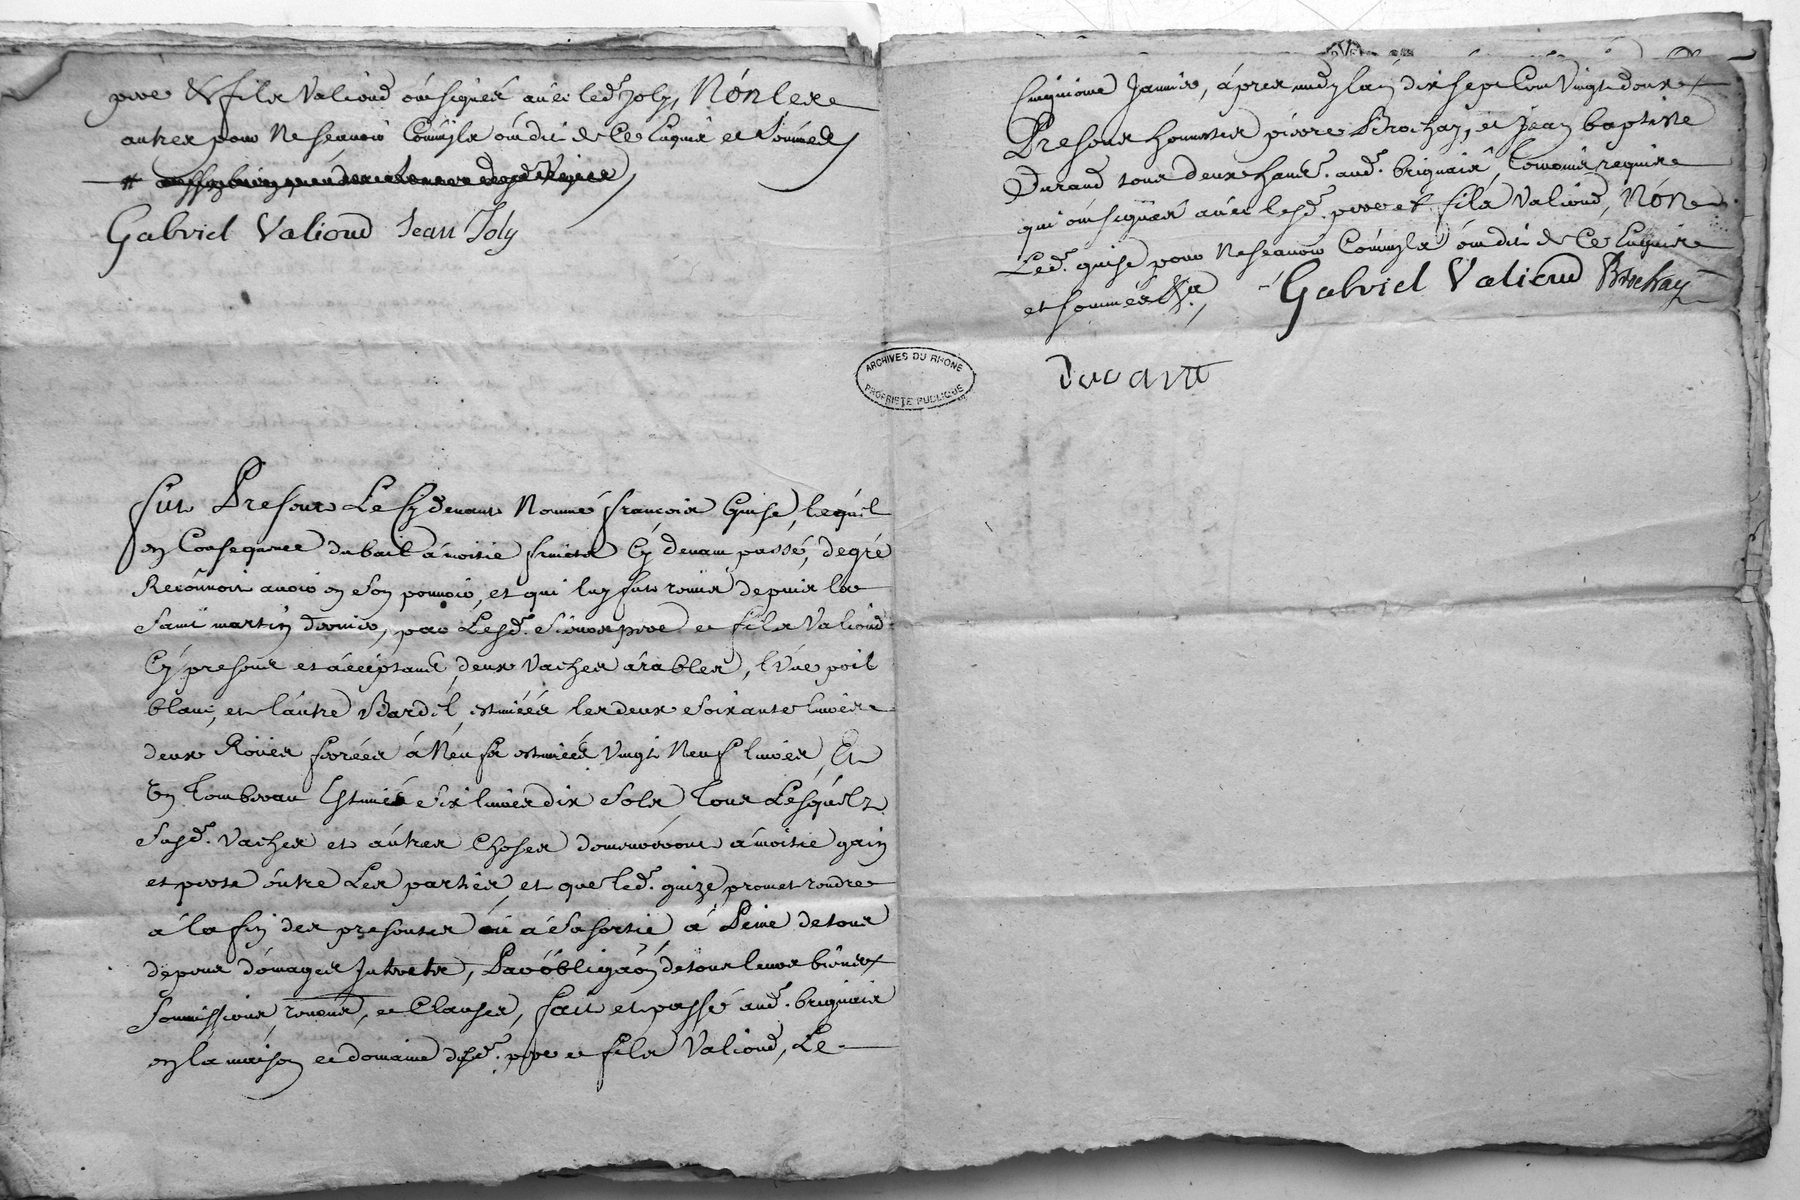 pere & fils Valioud ont signés avec led. Joly, Non les
autres pour ne scavoir Comm'ils ont dit de Ce Enquis et sommés
Gabriel Valioud Jean Joly
Fut Present Le Cy devant Nommé françois Guise, lequel
en Consequence du bail a moitié fruits Cy devant passé, de gré
Reconnoit avoir en son pouvoir, et qui luy fut remis depuis la
Saint martin dernier, par Lesd. Sieurs pere et fils Valioud
Cy presents et acceptants, deux Vaches arables, l'Vne poil
blanc, et l'autre Bardél, estimées les deux Soixante livres
deux Roües ferrées à Neuf estimées Vingt Neuf livres, Et
Un Tombereau Estimé Six livres dix Sols Tous Lesquels
Susd. Vaches et autres Choses demeureront a moitié gain
et perte entre Les parties, et que led. guize promet rendre
à la fin des presentes ou a Sa sortie à Peine de tous
depens domages Interets, Par obligaõn de tous leurs biens
Soumissions, renonc, et Clauses, fait et passé aud. brignais
en la maison et domaine desd. pere et fils Valioud, Le
Cinquieme Janvier, apres midy l'an dix sept Cent Vingt deux
Presents honnestes pierre Brochay, et Jean baptiste
Durand tous deux habt. aud. brignais, temoins requis
qui ont signés avec lesd. pere et fils Valioud, Non
Led. guise pour ne scavoir Comm'il a dit de Ce Enquis
et sommés
Gabriel Valioud Brochay
ARCHIVES DU RHONE
PROPRIETE PUBLIQUE
Durant